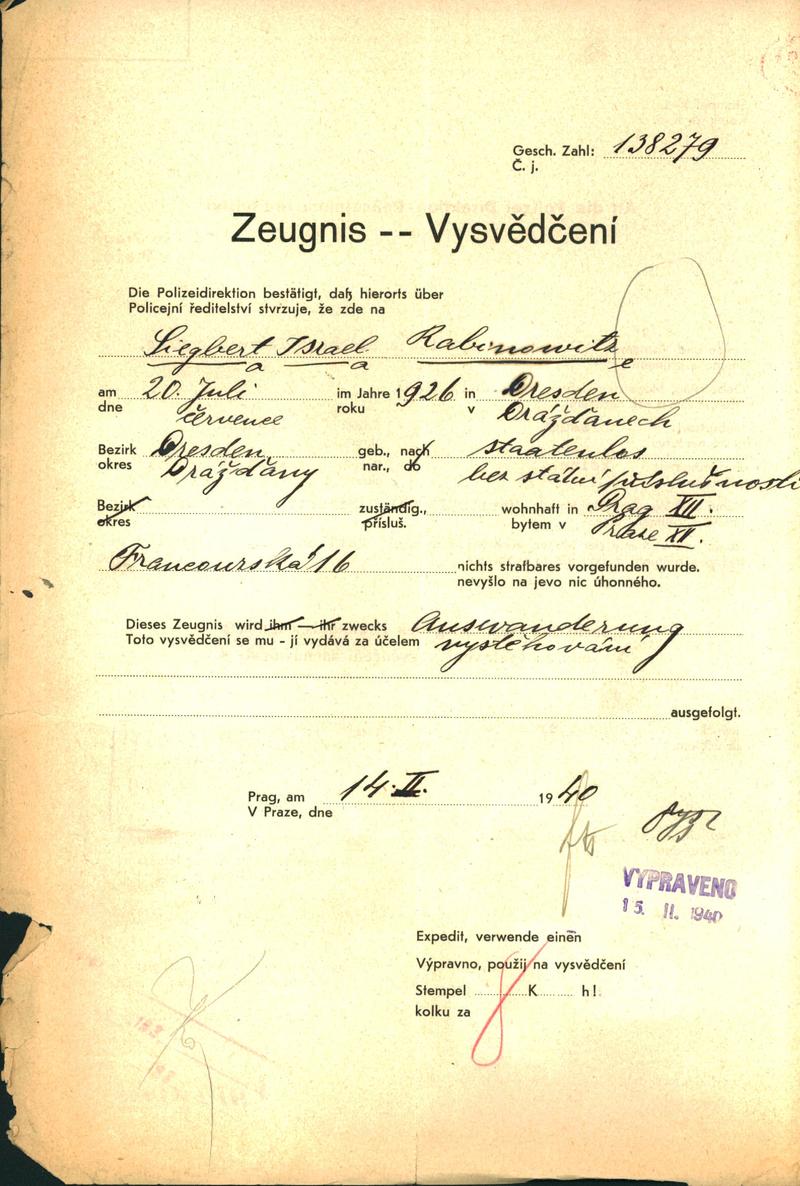 Gesch. Zahl: 138279
Č. j.
Zeugnis -- Vysvědčení
Die Polizeidirektion bestätigt, daß hierorts über
Policejní ředitelství stvrzuje, že zde na
Siegbert Israel Rabinowitz
a a e
am 20. Juli im Jahre 1926 in Dresden
dne července roku v Drážďanech
Bezirk Dresden geb., nach staatenlos
okres Drážďany nar., do bez státní příslušnosti
Bezirk zuständig., wohnhaft in Prag XII.
okres přísluš. bytem v Praze XII.
Francouzská 16 nichts strafbares vorgefunden wurde.
nevyšlo na jevo nic úhonného.
Dieses Zeugnis wird ihm — ihr zwecks Auswanderung
Toto vysvědčení se mu - jí vydává za účelem vystěhování
ausgefolgt.
Prag, am 14. II. 1940
V Praze, dne
VYPRAVENO
15. II. 1940
Expedit, verwende einen
Výpravno, použij na vysvědčení
Stempel K h!
kolku za
8